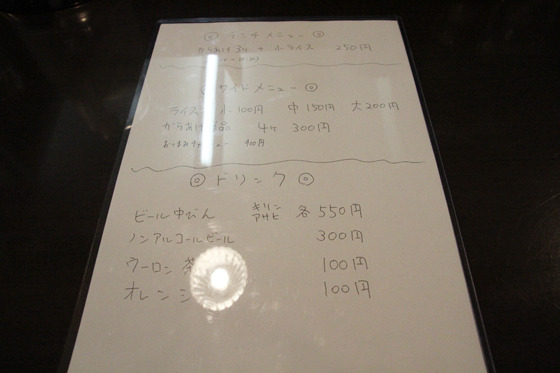 ◎ ランチメニュー ◎
からあげ 3ヶ + 小ライス 250円
サイドメニュー ◎
ライス 小 100円 中 150円 大 200円
からあげ 品 4ヶ 300円
おつまみチャーシュー 400円
◎ ドリンク ◎
ビール中びん キリン アサヒ 各 550円
ノンアルコールビール 300円
ウーロン茶 100円
オレンジ 100円